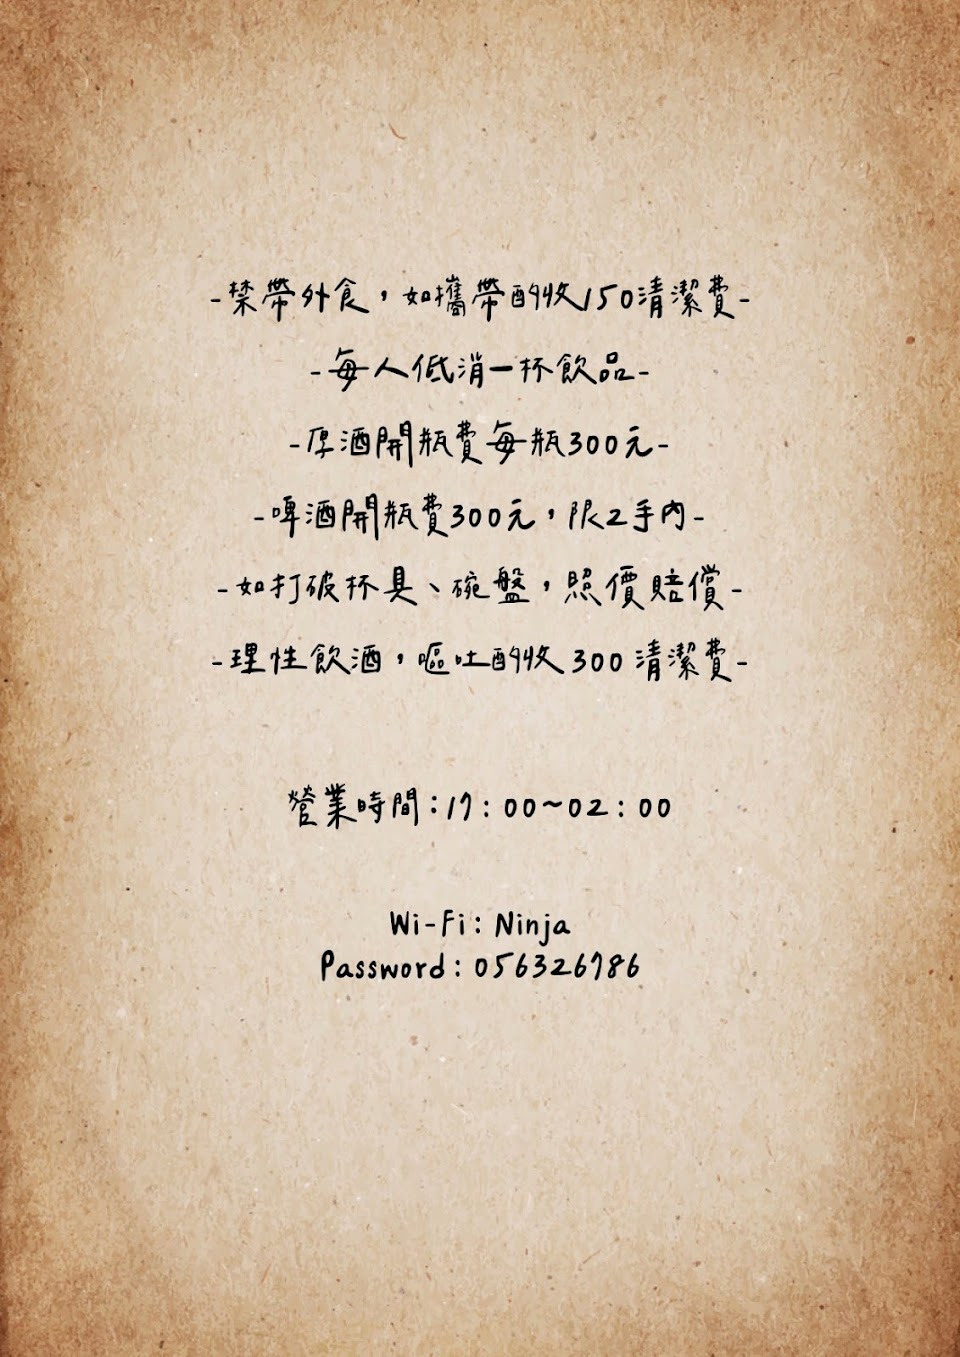 -禁帶外食，如攜帶酌收150清潔費-
-每人低消一杯飲品-
-厚酒開瓶費每瓶300元-
-啤酒開瓶費300元，限2手內-
-如打破杯具、碗盤，照價賠償-
-理性飲酒，嘔吐酌收 300 清潔費-
營業時間：17：00~02：00
Wi-Fi: Ninja
Password: 056326786